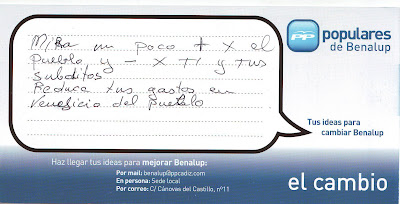 Mira un poco + x el
pueblo y - x TI y tus
subditos
Reduce tus gastos en
veneficio del Pueblo
PP
populares
de Benalup
Tus ideas para
cambiar Benalup
Haz llegar tus ideas para mejorar Benalup:
Por mail: benalup@ppcadiz.com
En persona: Sede local
Por correo: C/ Cánovas del Castillo, nº11
el cambio